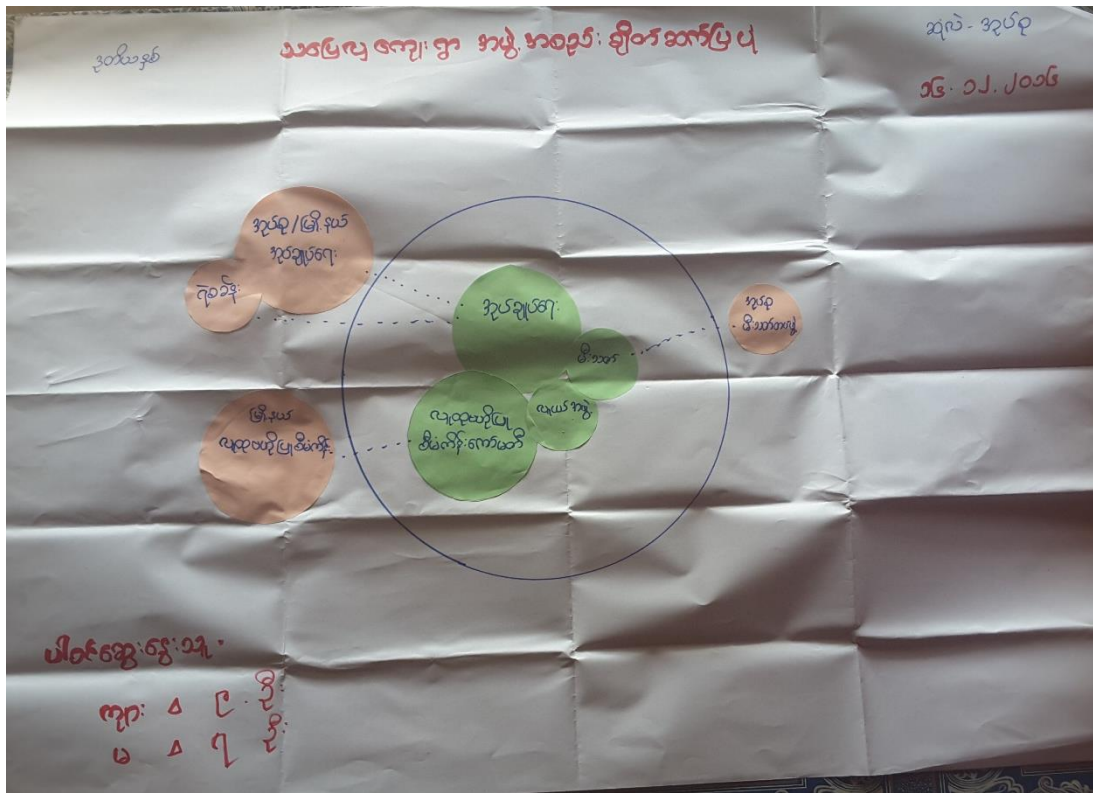 ဒုတိယနှစ်
သပြေလှ ကျေးရွာ အဖွဲ့အစည်း ချိတ်ဆက်ပြပုံ
ဆူလဲ - အုပ်စု
၁၆. ၁၂. ၂၀၁၆
အုပ်စု / မြို့နယ်
အုပ်ချုပ်ရေး
ရဲစခန်း
အုပ်ချုပ်ရေး
မီးသတ်
အုပ်စု
မီးသတ်တပဖွဲ့
လူထုဗဟိုပြု
စီမံကိန်းကော်မတီ
လုယယ် အဖွဲ့
မြို့နယ်
လူထုဗဟိုပြုစီမံကိန်း
ပါဝင်ဆွေးနွေးသူ -
ကျား ဝ ၉ ဦး
မ ဝ ၇ ဦး